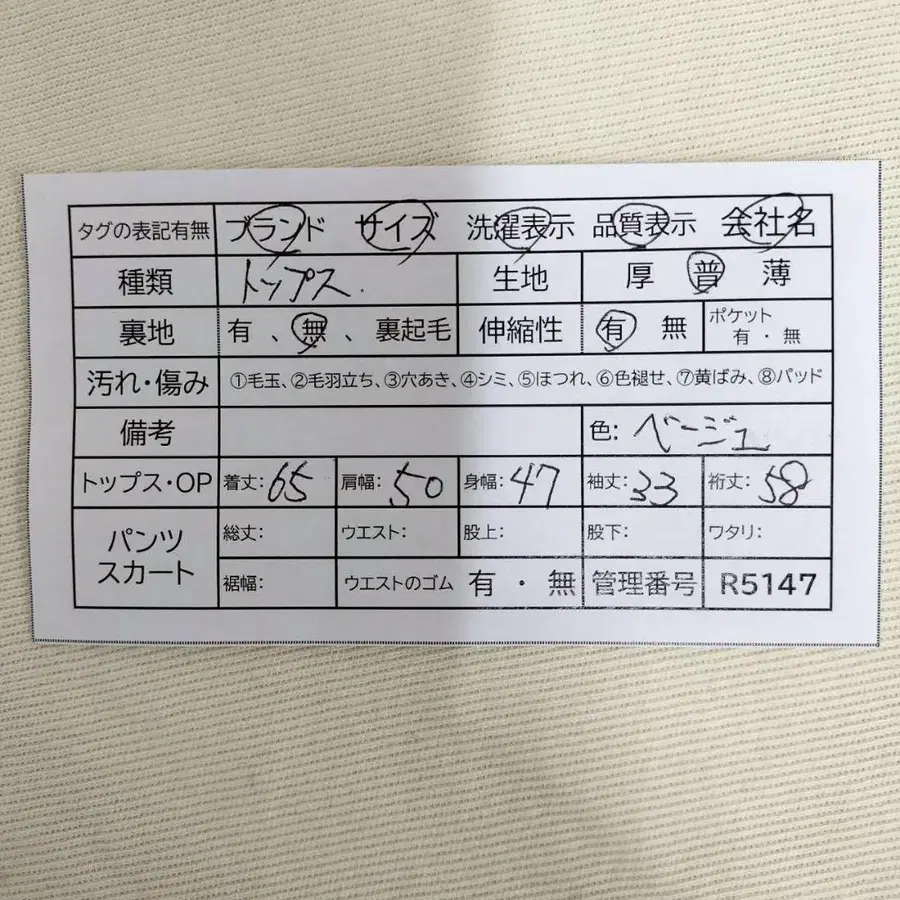 タグの表記有無 ブランド サイズ 洗濯表示 品質表示 会社名
種類 トップス. 生地 厚 普 薄
裏地 有 、無 、裏起毛 伸縮性 有 無 ポケット
有 ・ 無
汚れ・傷み ①毛玉、②毛羽立ち、③穴あき、④シミ、⑤ほつれ、⑥色褪せ、⑦黄ばみ、⑧パッド
備考 色: ベージュ
トップス・OP 着丈:65 肩幅:50 身幅:47 袖丈:33 裄丈:58
パンツ
スカート
総丈: ウエスト: 股上: 股下: ワタリ:
裾幅: ウエストのゴム 有 ・ 無 管理番号 R5147